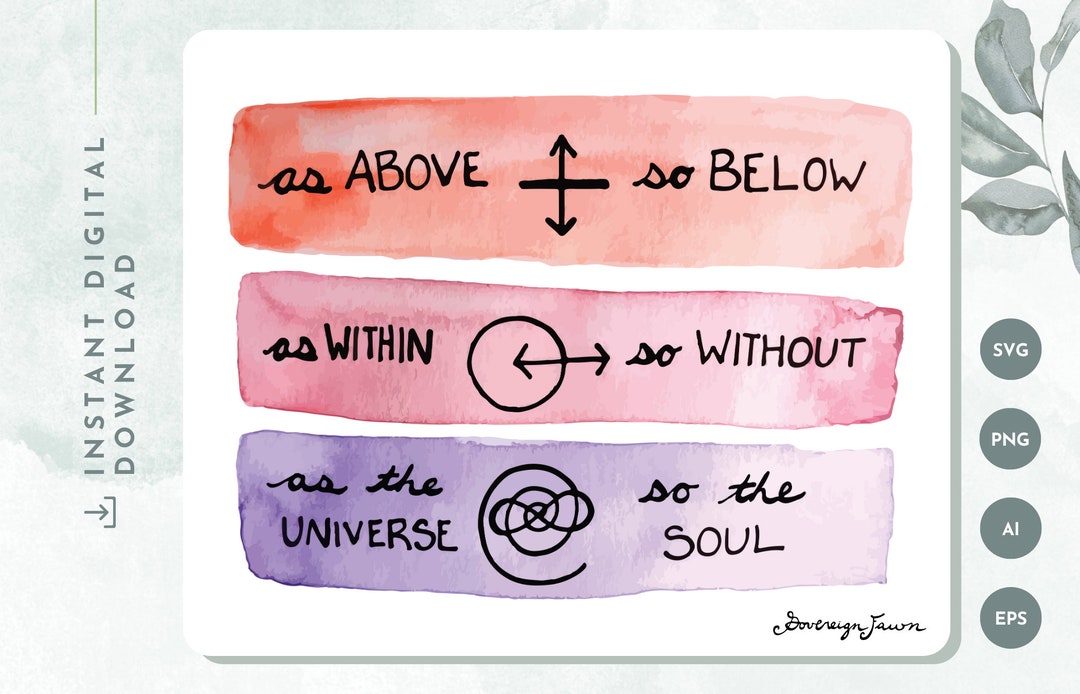 INSTANT DIGITAL
DOWNLOAD
as ABOVE so BELOW
as WITHIN so WITHOUT
as the so the
UNIVERSE SOUL
Sovereign Fawn
SVG
PNG
AI
EPS